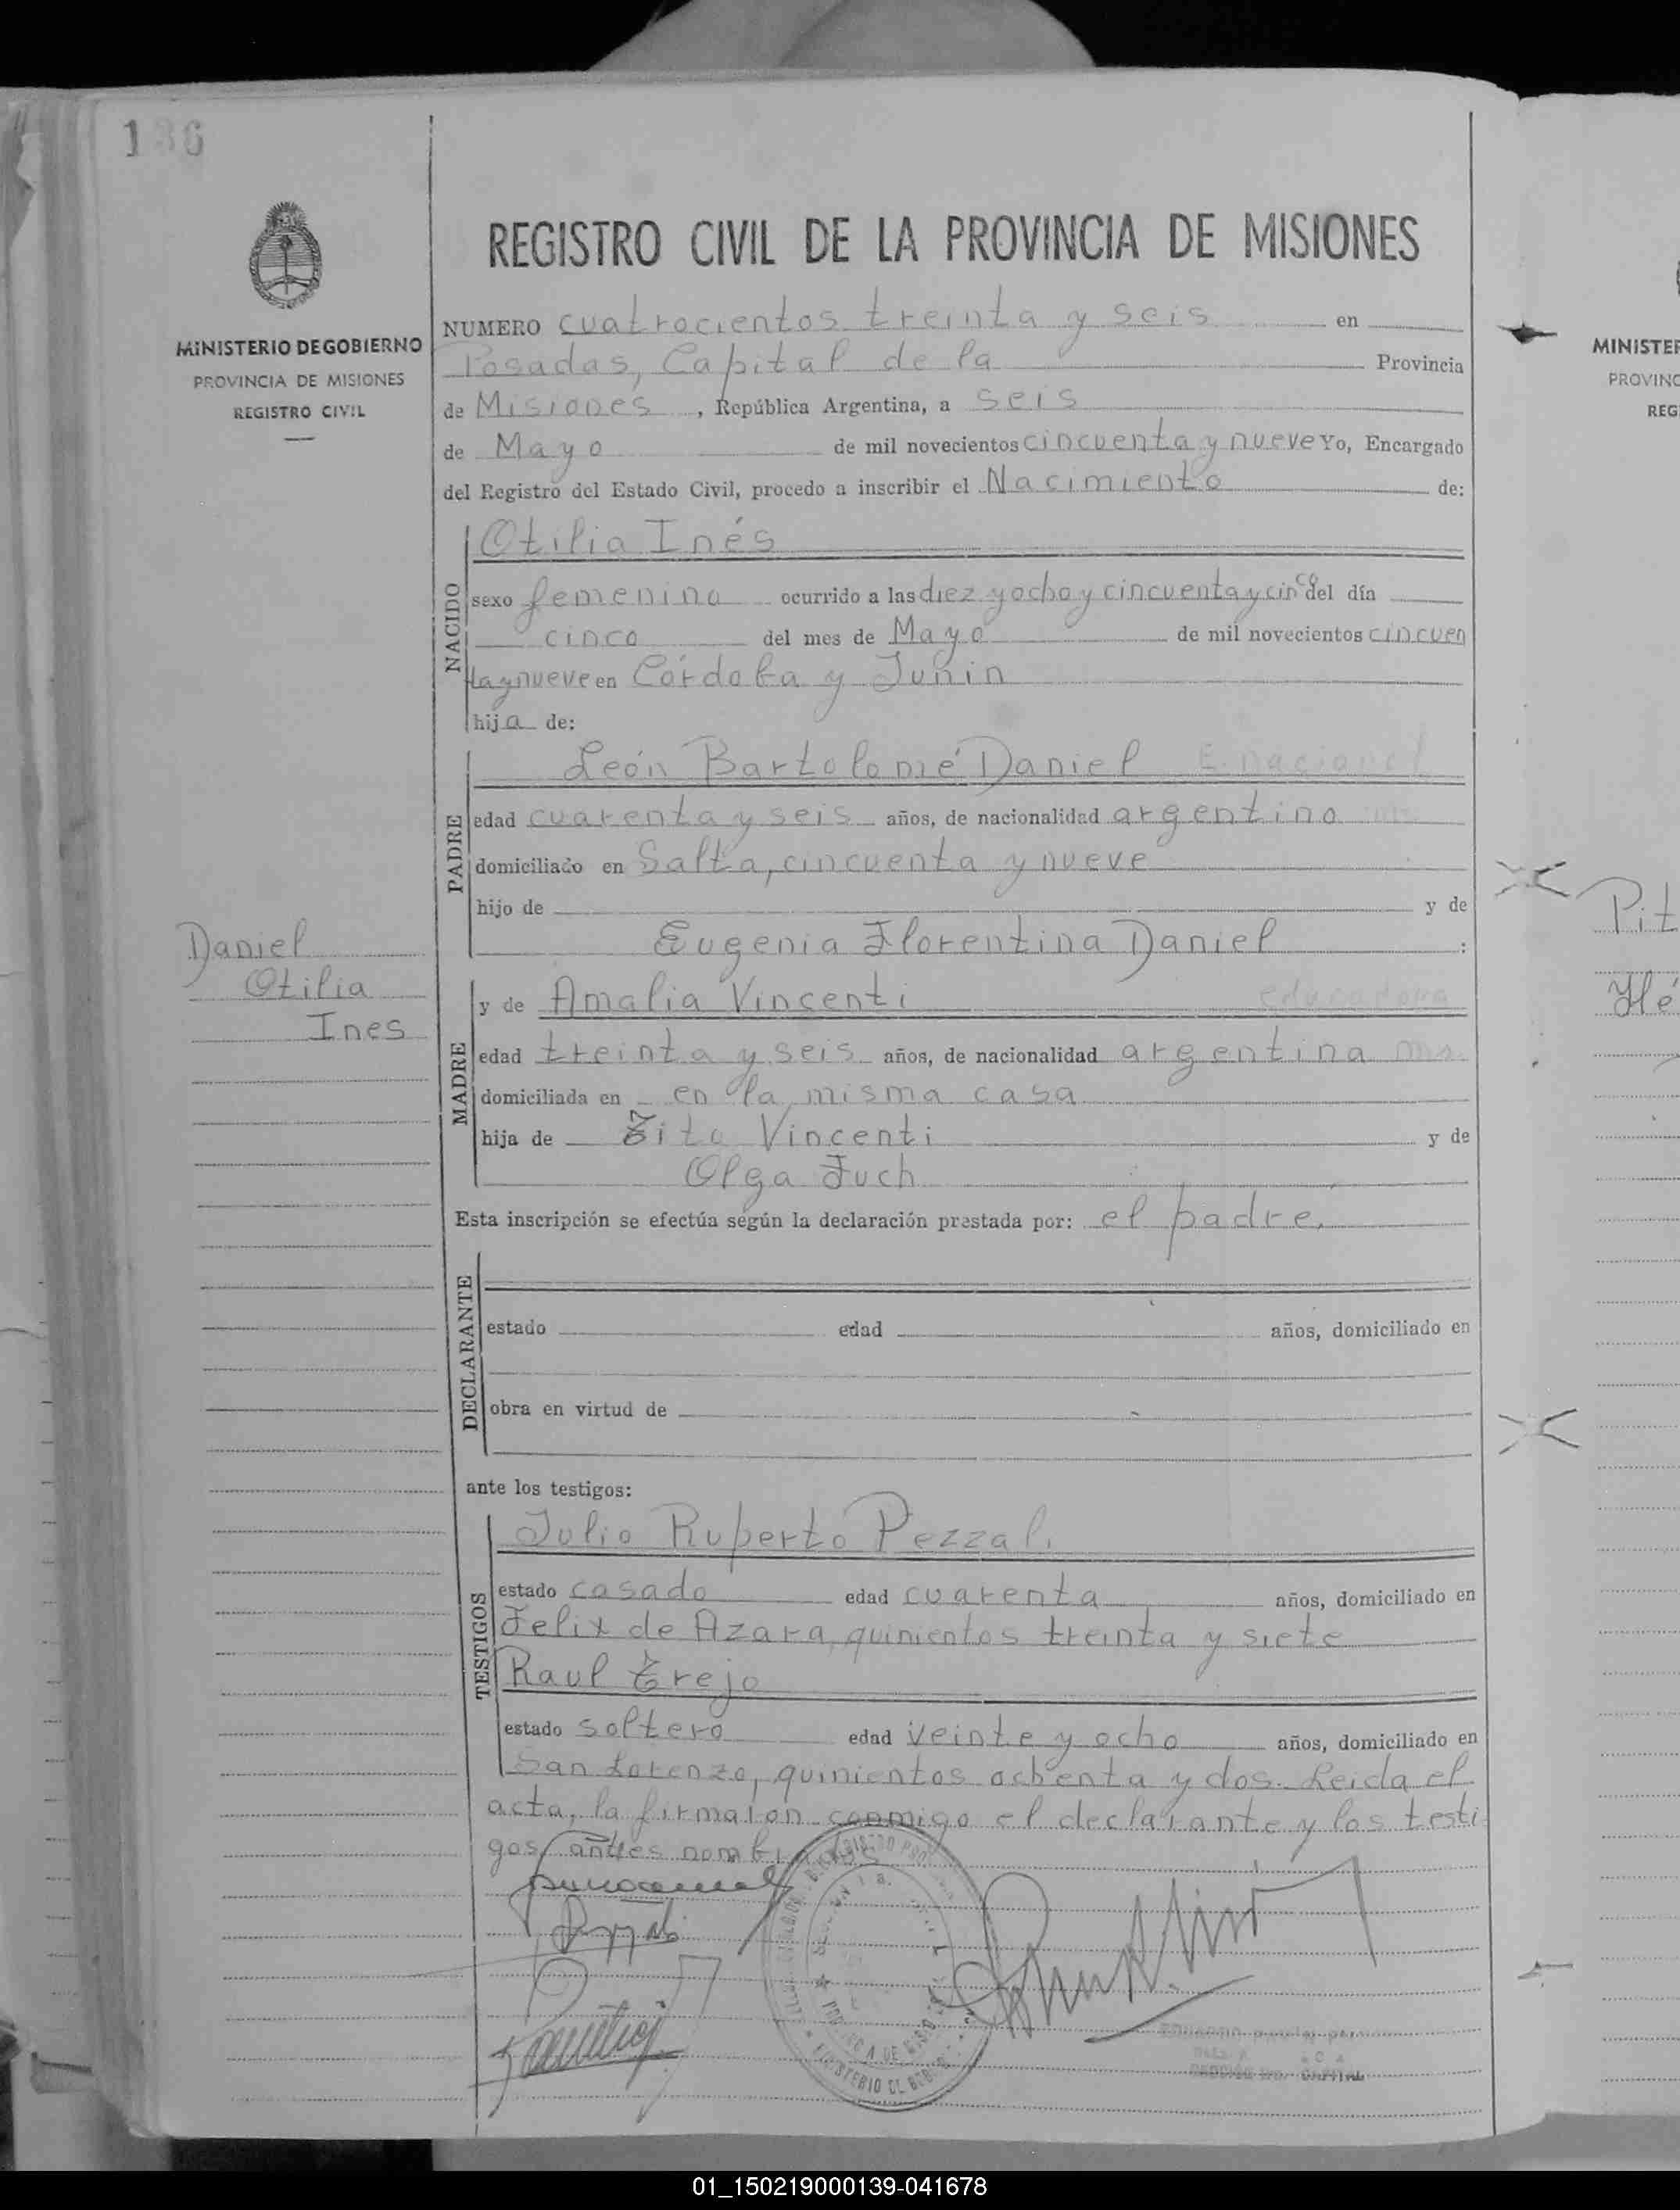 136
REGISTRO CIVIL DE LA PROVINCIA DE MISIONES
MINISTERIO DE GOBIERNO
PROVINCIA DE MISIONES
REGISTRO CIVIL
NUMERO cuatrocientos treinta y seis en
Posadas, Capital de la Provincia
de Misiones, República Argentina, a seis
de Mayo de mil novecientos cincuenta y nueve Yo, Encargado
del Registro del Estado Civil, procedo a inscribir el Nacimiento de:
NACIDO
Otilia Inés
sexo femenino ocurrido a las diez y ocho y cincuenta y cinco del día
cinco del mes de Mayo de mil novecientos cincuen
ta y nueve en Córdoba y Junin
hija de:
PADRE
León Bartolomé Daniel E. nacional
edad cuarenta y seis años, de nacionalidad argentino
domiciliado en Salta, cincuenta y nueve
hijo de y de
Eugenia Florentina Daniel :
Daniel
Otilia
Ines
MADRE
y de Amalia Vincenti educadora
edad treinta y seis años, de nacionalidad argentina
domiciliada en en la misma casa
hija de Tito Vincenti y de
Olga Fuch
Esta inscripción se efectúa según la declaración prestada por: el padre.
DECLARANTE
estado edad años, domiciliado en
obra en virtud de
ante los testigos:
TESTIGOS
Julio Ruperto Pezzali
estado casado edad cuarenta años, domiciliado en
Felix de Azara, quinientos treinta y siete
Raul Trejo
estado soltero edad veinte y ocho años, domiciliado en
San Lorenzo, quinientos ochenta y dos. Leida el
acta, la firmaron conmigo el declarante y los testi
gos antes nombrados
CAPITAL
MINISTER
PROVINC
REG
Pit
Hé
01_150219000139-041678